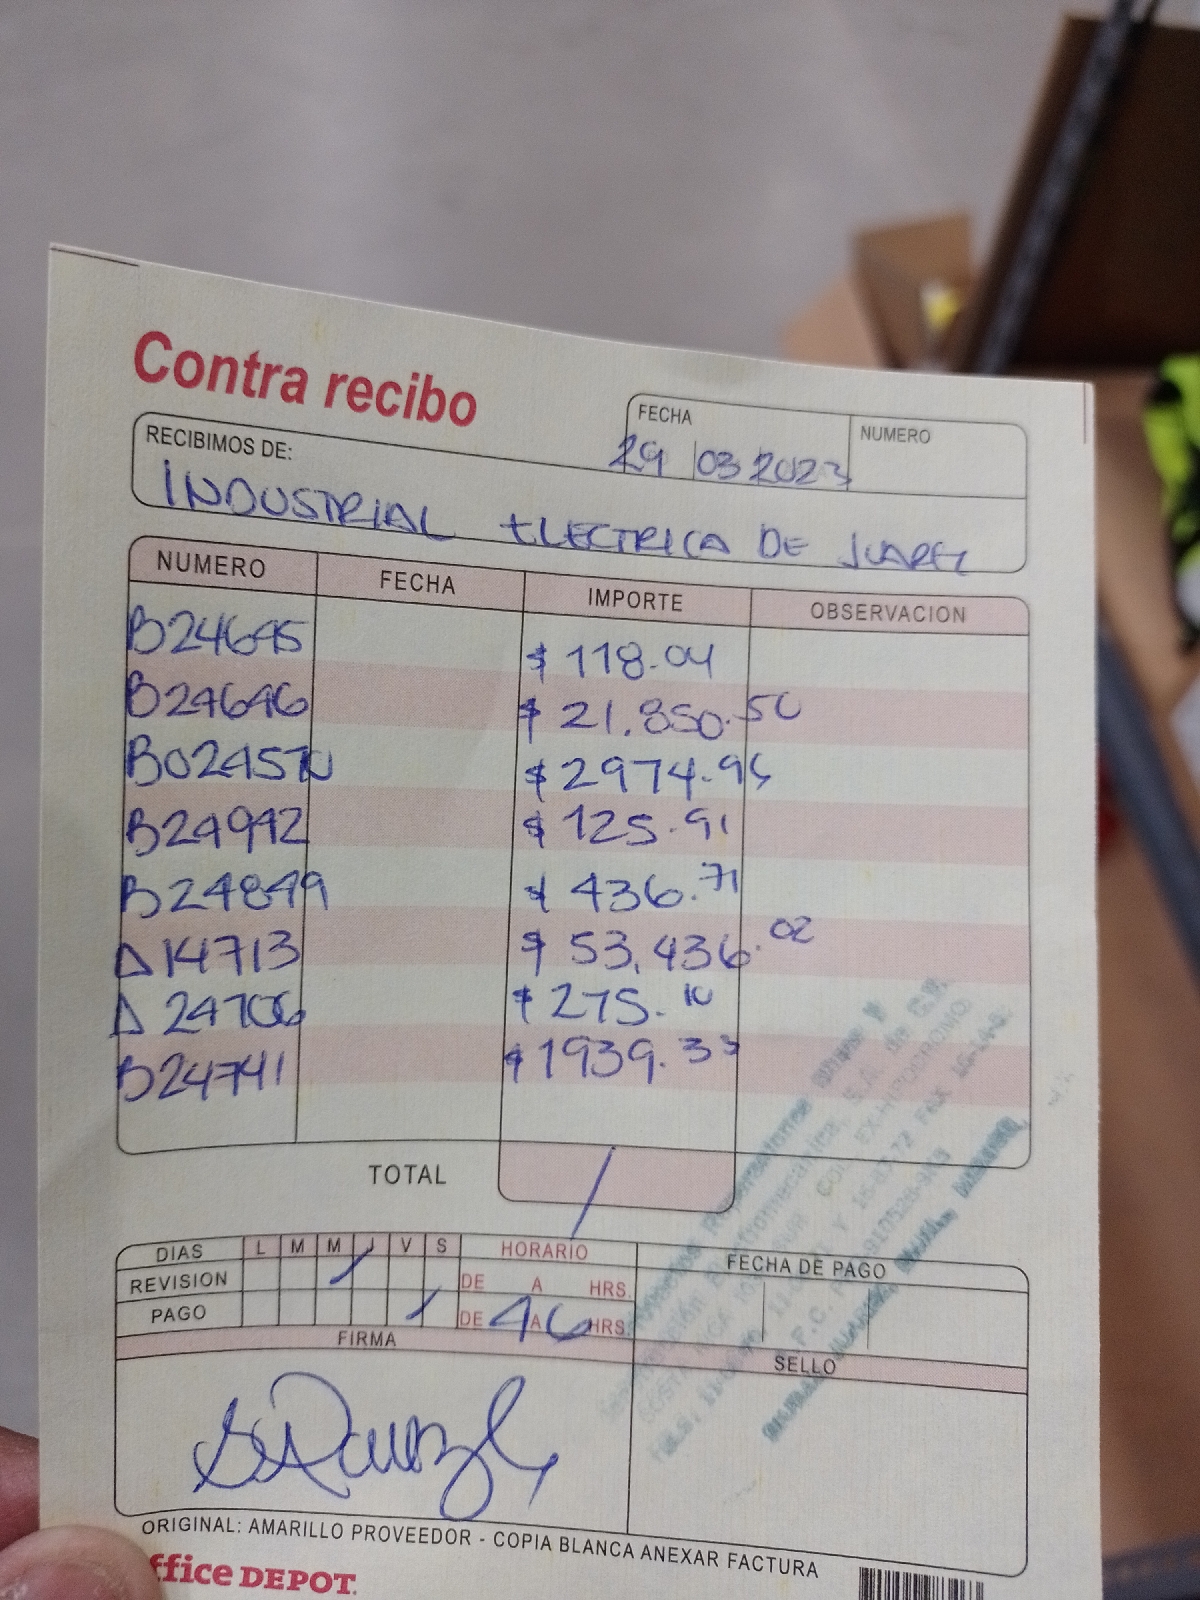 Contra recibo
FECHA
NUMERO
29 03 2023
RECIBIMOS DE:
INDUSTRIAL ELECTRICA DE JUAREZ
NUMERO FECHA IMPORTE OBSERVACION
B24695 $ 118.04
B24646 $ 21,850.50
$ 2974.95
B24942 $ 125.91
B24849 $ 436.71
A14713 $ 53,436.02
A 24706 $ 275.10
B24741 $ 1939.33
TOTAL
DIAS L M M J V S HORARIO FECHA DE PAGO
REVISION DE A HRS.
PAGO DE 4 A 6 HRS.
FIRMA SELLO
ORIGINAL: AMARILLO PROVEEDOR - COPIA BLANCA ANEXAR FACTURA
ffice DEPOT